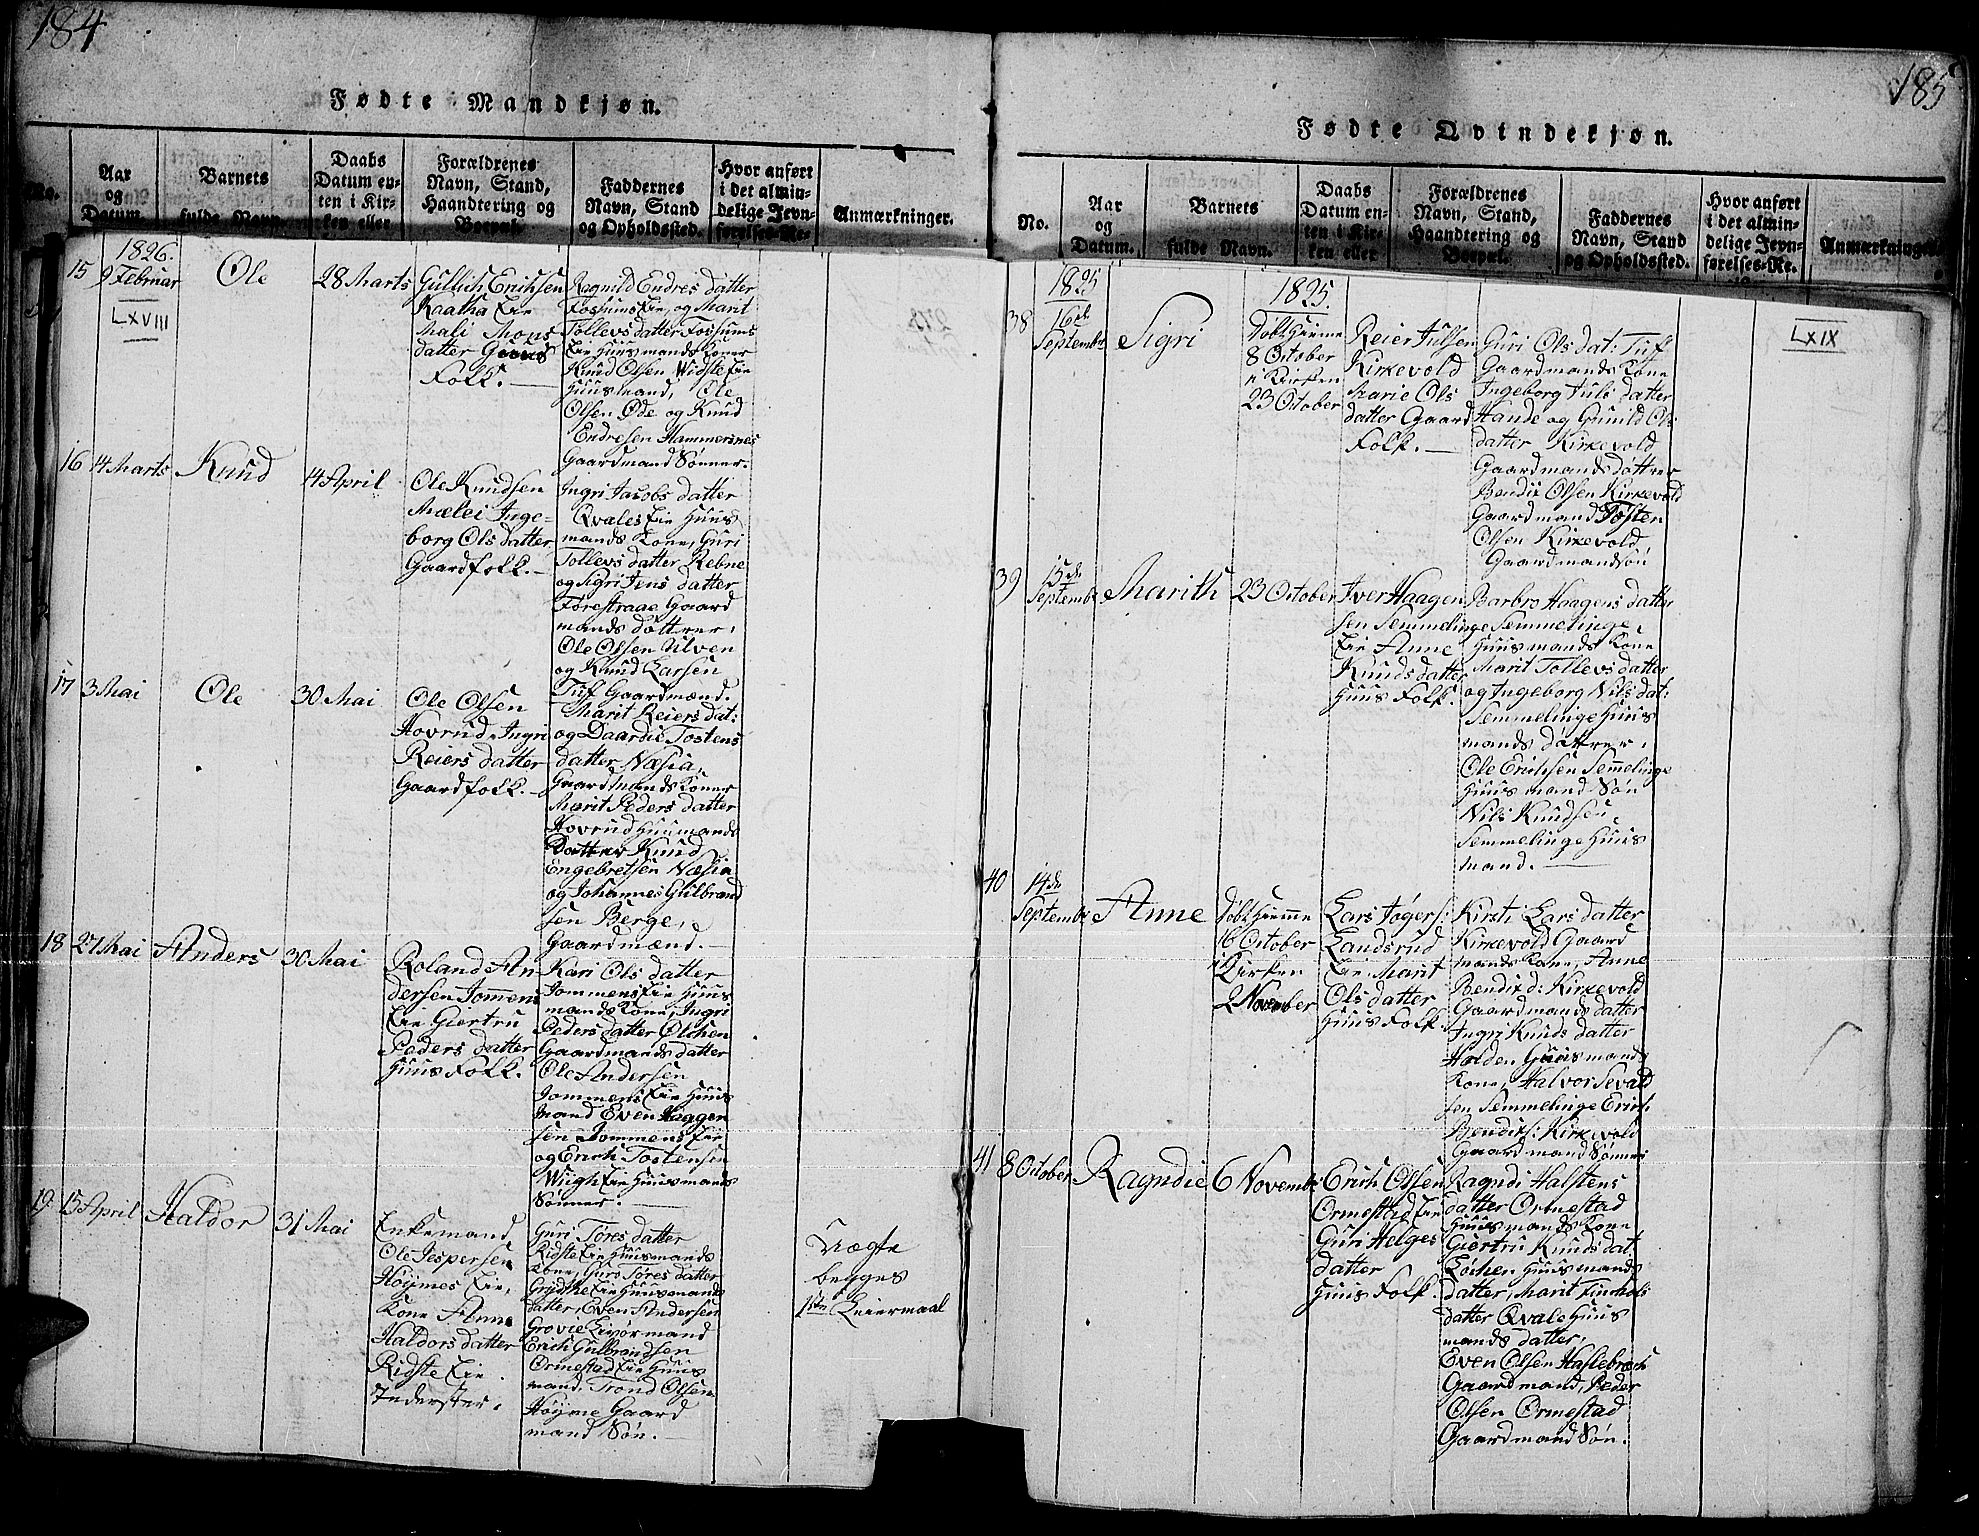 184
Fødte Mandkjøn.
No.
Aar
og
Datum.
Barnets
fulde Navn.
Daabs
Datum en-
ten i Kir-
ken eller
Forældrenes
Navn, Stand,
Haandtering og
Borpæl.
Faddernes
Navn, Stand
og Opholdssted.
Hvor anført
i det almin-
delige Jevn-
førelses-Re-
Anmærkninger.
1826.
15
9 Februar
LXVIII
Ole
28 Marts
Gullich Erichsen
Kaatha Eie
Mali Mons
datter Gaards
Folk.
Ragnild Endres datter
Fossums Eie, og Marit
Tollevs datter Fossums
Eie Huusmands Koner
Knud Olsen Widste Eie
Huusmand, Ole
Olsen Øde og Knud
Endresen Hammersnes
Gaardmand Sønner.
16
14 Marts
Knud
4 April
Ole Knudsen
Mælei Inge-
borg Ols datter
Gaardfolk.
Ingri Jacobs datter
Qvales Eie Huus
mands Kone, Guri
Tollevs datter Rebne
og Sigri Jens datter
Førestraae Gaard
mands døttrer.
Ole Olsen Ulven
og Knud Larsen
Tuf Gaardmænd.
17
3 Mai
Ole
30 Mai
Ole Olsen
Hovrud, Ingri
Reiers datter
Gaardfolk.
Marit Reiers dat:
og Daardie Tostens
datter Næsia,
Gaardmands Koner
Marit Peders datter
Hovrud Huumands
Datter Knud
Engebretsen Næsia
og Johannes Gulbrand
sen Berge,
Gaardmænd.
18
27 Mai
Anders
30 Mai
Roland An
dersen Jommens
Eie Giertru
Peders datter
Huus Folk.
Kari Ols datter
Jommens Eie Huus
mands Kone, Ingri
Peders datter Ølchen
Gaardmands datter
Ole Andersen
Jommens Eie Huus
mand Even Haagen
sen Jommens Eie
og Erich Tostensen
Wiigh Eie Huusmands
Sønner.
19.
15 April
Haldor
31 Mai
Enkemand
Ole Jespersen
Høymes Eie,
Kone Anne
Haldors datter
Ridste Eie
Inderster.
Guri Tøres datter
Ridste Eie Huusmands
Kone, Guro Tøres datter
Grydthe Eie Huusmands
datter, Even Andersen
Grovie Livørmand
Erich Gulbrandsen
Ormestad Eie Huus
mand, Trond Olsen
Høyme Gaard
mand Søn.
Uægte
begges
1ste Leiermaal
185
Fødte Qvindekjøn.
No.
Aar
og
Datum.
Barnets
fulde Navn.
Daabs
Datum en-
ten i Kir-
ken eller
Forældrenes
Navn, Stand,
Haandtering og
Borpæl.
Faddernes
Navn, Stand
og Opholdssted.
Hvor anført
i det almin-
delige Jevn-
førelses-Re.
Anmærkninger.
1825
38
16de
Septembr
Sigri
1825.
Døbt Hieme
8 October
i Kirken
23 October
Reier Julsen
Kirkevold
Marie Ols
datter Gaard
Folk.
Guri Ols dat: Tuf
Gaardmands Kone
Ingeborg Juls datter
Hande og Gunild Ols
datter Kirkevold
Gaardmands døttrer
Bendix Olsen Kirkevold
Gaardmand Tosten
Olsen Kirkevold
Gaardmandsøn
LXIX
39
15de
Septembr
Marith
23 October
Iver Haagen
sen Semmelinge
Eie Anne
Knuds datter
Huus Folk.
Barbro Haagens datter
Semmelinge,
Huusmands Kone
Marit Tollevs datter
og Ingeborg Nils dat:
Semmelinge Huus
mands døttrer.
Ole Erichsen Semelinge
Huusmand Søn
Nils Knudsen,
Semmelinge Huus
mand.
40
14de
Septembr
Anne
Døbt Hiemme
16 October
i Kirken
2 November
Lars Jøgers:
Landsrud
Eie Marit
Ols datter
Huus Folk.
Kirsti Lars datter
Kirkevold Gaard
mands Kone, Anne
Bendix d: Kirkevold
Gaardmands datter
Ingri Knuds datter
Holden Huusmands
Kone, Halvor Sevald
sen Semmelinge Erich
Bendix: Kirkevold
Gaardmand Sønner
41
8 October
Ragndie
6 Novembr
Erich Olsen
Ormestad Eie
Guri Helges
datter
Huus Folk.
Ragndi Halstens
datter Ormestad
Huusmands Kone
Giertru Knuds dat:
Løchen Huusmands
datter, Marit Finchols
datter Qvale Huus
mands datter,
Even Olsen Haslebrech
Gaardmand, Peder
Olsen Ormestad
Gaardmand Søn.